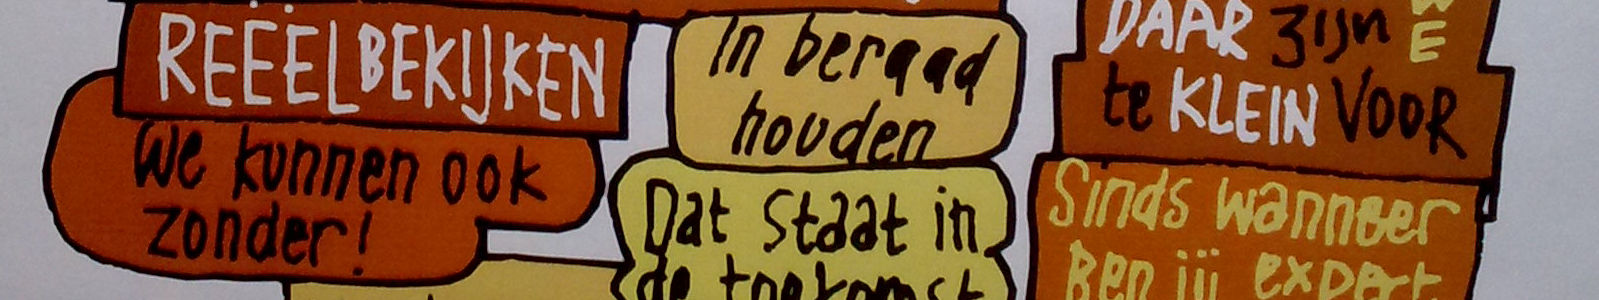 REËELBEKIJKEN
We kunnen ook
zonder!
In beraad
houden
Dat staat in
de toekomst
DAAR zijn WE
te KLEIN VOOR
Sinds wanneer
Ben jij expert